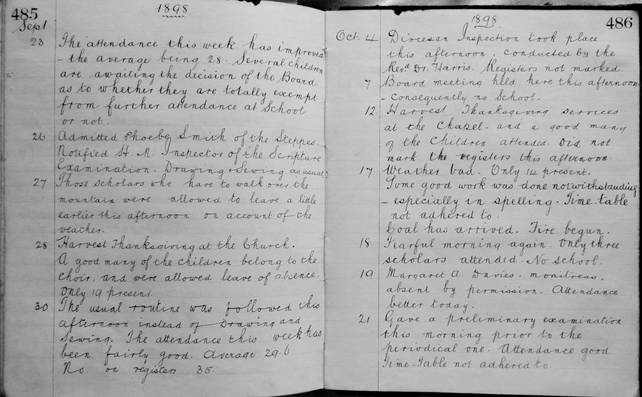 485
1898
Sept
23 The attendance this week has improved
- the average being 28. Several children
are awaiting the decision of the Board
as to whether they are totally exempt
from further attendance at School
or not.
26 Admitted Phoebe Smith of the Steppes.
Notified H. M. Inspector of the Scripture
Examination. Drawing & Sewing as usual
27 Those scholars who have to walk over the
mountain were allowed to leave a little
earlier this afternoon on account of the
weather.
28 Harvest Thanksgiving at the Church.
A good many of the children belong to the
Choir, and were allowed leave of absence.
Only 19 present.
30 The usual routine was followed this
afternoon instead of Drawing and
Sewing. The attendance this week has
been fairly good. Average 29.6
No. on registers 35.
486
1898
Oct. 4 Diocesan Inspection took place
this afternoon, conducted by the
Revd. Dr. Harris. Registers not marked.
7 Board meeting held here this afternoon
- Consequently no School.
12 Harvest Thanksgiving services
at the Chapel, and a good many
of the Children attended. Did not
mark the registers this afternoon
17 Weather bad. Only 14 present.
Some good work was done notwithstanding
- especially in spelling. Time-table
not adhered to.
Coal has arrived. Fire begun.
18 Fearful morning again. Only three
scholars attended. No school.
19 Margaret A. Davies, monitress,
absent by permission. Attendance
better today.
21 Gave a preliminary examination
this morning prior to the
periodical one. Attendance good
Time-Table not adhered to.